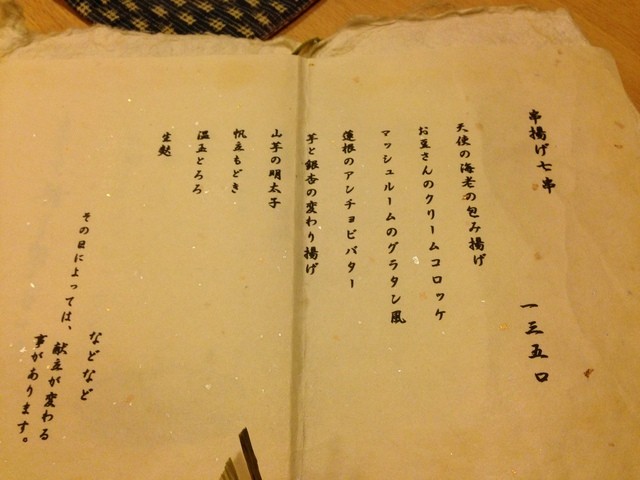 串揚げ七串
一三五〇
天使の海老の包み揚げ
お豆さんのクリームコロッケ
マッシュルームのグラタン風
蓮根のアンチョビバター
芋と銀杏の変わり揚げ
山芋の明太子
帆立もどき
温玉とろろ
生麩
などなど
その日によっては、
献立が変わる
事があります。